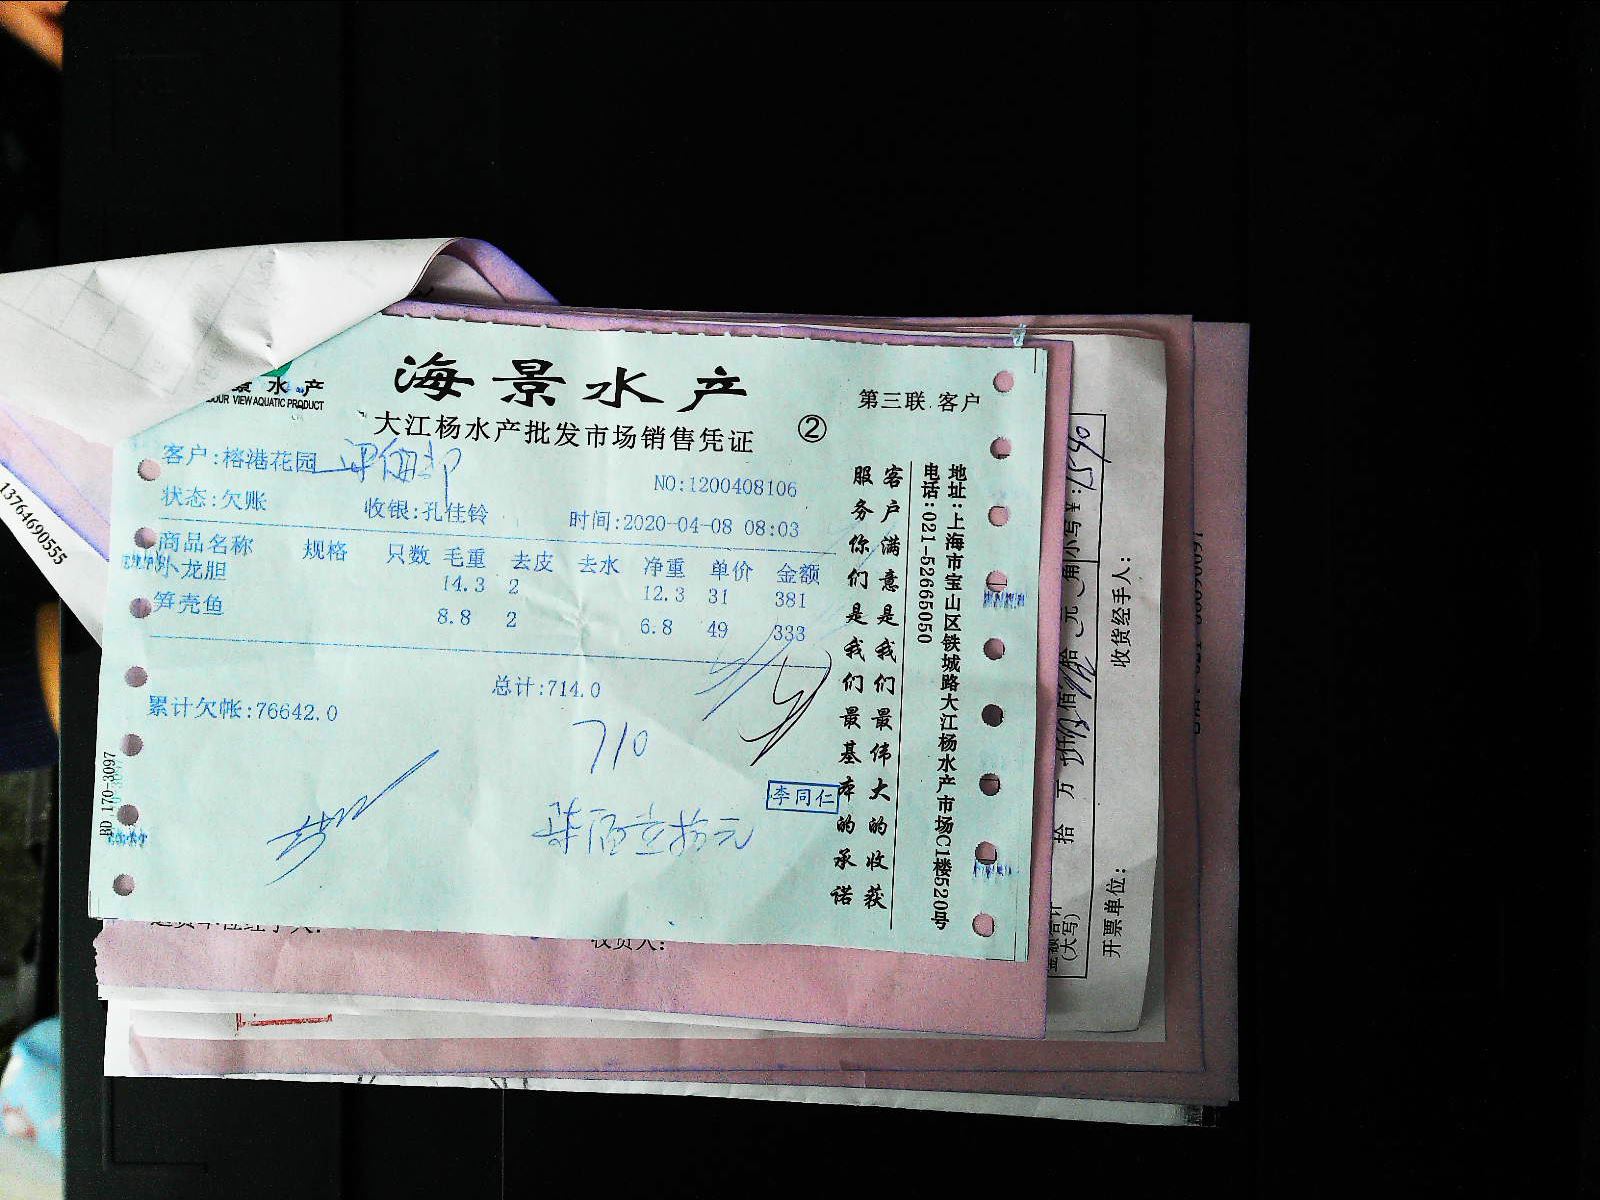 海景水产
景水产
OUR VIEW AQUATIC PRODUCT
大江杨水产批发市场销售凭证
②
第三联.客户
客户:榕港花园
NO:1200408106
状态:欠账 收银:孔佳铃 时间:2020-04-08 08:03
商品名称 规格 只数 毛重 去皮 去水 净重 单价 金额
小龙胆 14.3 2 12.3 31 381
笋壳鱼 8.8 2 6.8 49 333
总计:714.0
累计欠帐:76642.0
710
柒佰壹拾元
李同仁
BD 170-3097
客户满意是我们最伟大的收获
服务你们是我们最基本的承诺
地址:上海市宝山区铁城路大江杨水产市场C1楼520号
电话:021-52665050
13764690555
收货人:
小写¥:
万
拾
佰
拾
元
角
(大写)
收货经手人:
开票单位: